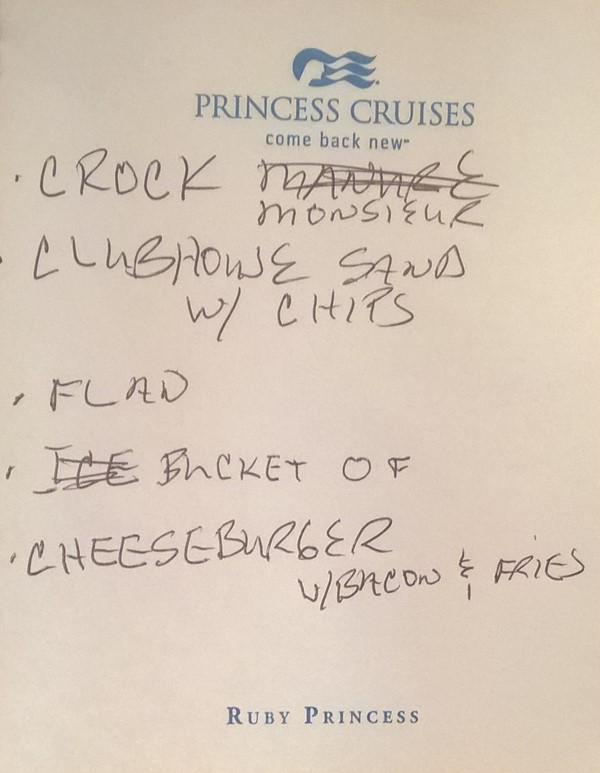 PRINCESS CRUISES
come back new℠
· CROCK
MONSIEUR
· CLUBHOUSE SAND
W/ CHIPS
· FLAN
· ICE BUCKET OF
· CHEESEBURGER
W/BACON & FRIES
RUBY PRINCESS